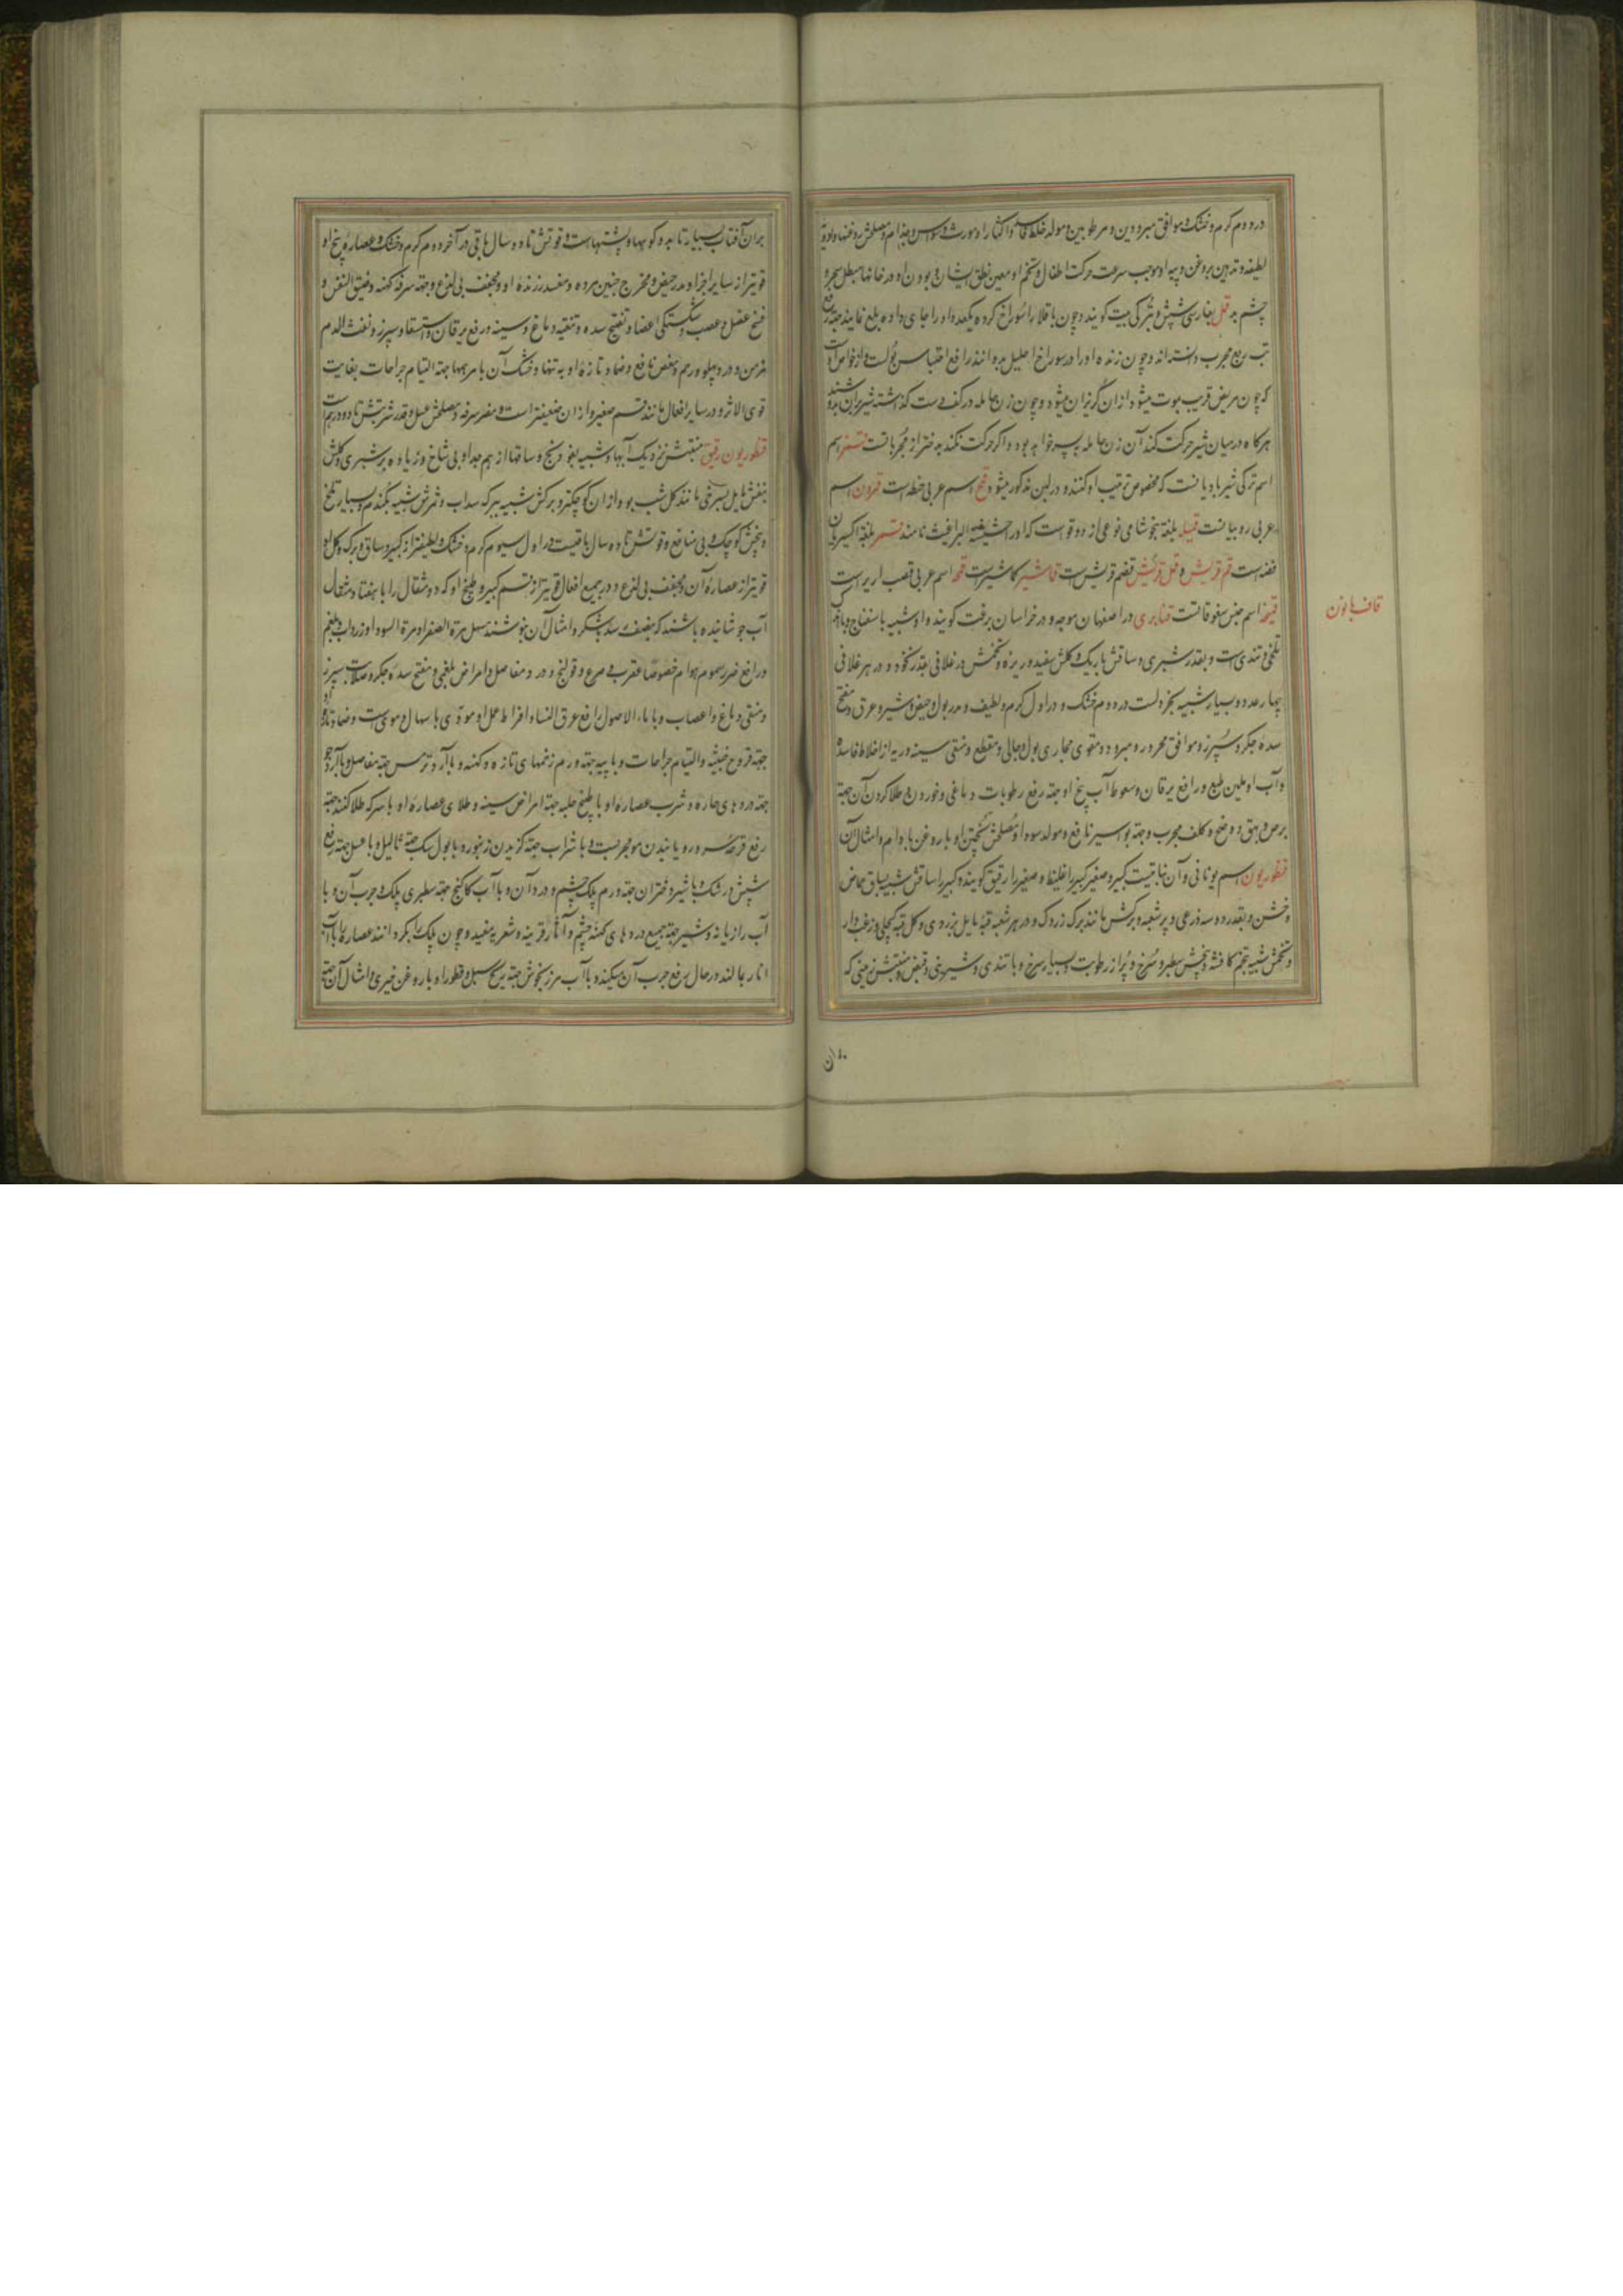 در دوم گرم و خشک و موافق مبرودین و مرطوبین و مولد خلط فاسد و اکثار او مورث وسواس و جذام و مصلحش روغنها و ادویه
لطیفه و تدهین بروغن و پیه او موجب سرعت حرکت اطفال و تخم او معین نطق ایشان و بودن او در خانها مبطل سحر و
چشم بد قمل بفارسی شپش و بترکی بیت گویند و چون باقلا را سوراخ کرده یکعدد او را جای داده بلع نمایند جهة رفع
تب ربع مجرب دانسته‌اند و چون زنده او را در سوراخ احلیل بدوانند رافع احتباس بولست و از خواص اوست
که چون مریض قریب بموت میشود ازان گریزان میشود و چون زن حامله در کف دست گذاشته شیر بران بدوشند
هرگاه در میان شیر حرکت کند آن زن حامله بپسر خواهد بود و اگر حرکت نکند بدختر از مجرباتست قمز اسم
اسم ترکی شیر مادیانست که مخصوص ترتیب او کنند و در لبن مذکور میشود قمح اسم عربی حنطه است قمرون اسم
عربی روبیانست قمیله بلغة شامی نوعی از دوقو است که او را حشیشة البراغیث نامند قمر بلغة اکسیریان
فضه است قم قریش و قمل قریش قضم قریش است قماشیر کماشیر است قمحه اسم عربی قصب الذریره است
قمحه اسم جنس سفوفاتست قنابری در اصفهان موجود و در خراسان برغست گویند و او شبیه باسفناج و با اندک
تلخی و تندی است و بقدر شبری و ساقش باریک و گلش سفید و ریزه و تخمش در غلافی بقدر نخود و در هر غلافی
چهار عدد و بسیار شبیه بخردلست در دوم خشک و در اول گرم و لطیف و مدر بول و حیض و شیر و عرق و مفتح
سده جگر و سپرز و موافق محرور و مبرود و مقوی مجاری بول و جالی و مقطع و منقی سینه و ریه از اخلاط فاسده
و آب او ملین طبع و رافع یرقان و سعوط آب بیخ او جهة رفع رطوبات دماغی و خوردن و طلا کردن آن جهة
برص و بهق و وضح و کلف مجرب و جهة بواسیر نافع و مولد سودا و مصلحش پختن او با روغن بادام و امثال آن
قنطوریون اسم یونانی و آن نباتیست کبیر و صغیر کبیر را غلیظ و صغیر را رقیق گویند و کبیر را ساقش شبیه بساق حماض
و خشن و بقدر دو سه ذرعی و پر شعبه و برگش مانند برگ زردک و در هر شعبه قبه مایل بزردی و گل قبه کحلی و زغب دار
و تخمش شبیه بتخم کافشه و بیخش سطبر و سرخ و پر از رطوبت و بسیار سرخ و با تندی و شیرینی و قبض و منبتش زمینی که
قاف با نون
بران
بران آفتاب بسیار تابد و کوهها و پشتهاست و قوتش تا ده سال باقی در آخر دوم گرم و خشک و عصاره بیخ او
قویتر از سایر اجزا و مدر حیض و مخرج جنین مرده و مفسد زنده او و مجفف بی لذع و جهة سرفه کهنه و ضیق النفس و
فسخ عضل و عصب و شکستگی اعضا و تفتیح سده و تنقیه دماغ و سینه و رفع یرقان و استسقا و سپرز و نفث الدم
مزمن و درد پهلو و رحم و مغص نافع و ضماد تازه او به تنها و خشک آن با مرهمها جهة التیام جراحات بغایت
قوی الاثر و در سایر افعال مانند قسم صغیر و ازان ضعیفتر است و مضر سرفه و مصلحش عسل و قدر شربتش تا دو درهم است
قنطوریون رقیق منبتش نزدیک آبها و شبیه بفودنج و ساقها از هم جدا و بی شاخ و زیاده بر شبری و گلش
بنفش مایل بسرخی مانند گل شب بو و ازان کوچکتر و برگش شبیه ببرگ سداب و ثمرش شبیه بگندم و بسیار تلخ
و بیخش کوچک و بی منافع و قوتش تا ده سال باقیست در اول سیوم گرم و خشک و لطیفتر از کبیر و ساق و برگ و گل او
قویتر از عصاره آن و مجفف بی لذع و در جمیع افعال قویتر از قسم کبیر و طبیخ او که دو مثقال را با هفتاد مثقال
آب جوشانیده باشند که بنصف رسد با شکر و امثال آن بنوشند مسهل مرة الصفرا و مرة السودا و زرداب و بلغم
و رافع ضرر سموم هوام خصوصا عقرب و صرع و قولنج و درد مفاصل و امراض بلغمی و مفتح سده جگر و صلابت سپرز
و منقی دماغ و اعصاب و با ماء الاصول رافع عرق النسا و افراط عمل او مؤدی باسهال دموی است و ضماد تازه او
جهة قروح خبیثه و التیام جراحات و با پیه جهة ورم زخمهای تازه و کهنه و با آرد ترمس جهة مفاصل و با آرد جو
جهة دردهای حاره و شرب عصاره او با طبیخ حلبه جهة امراض سینه و طلای عصاره او با سرکه طلا کنند جهة
رفع قرحه سر و رویانیدن مو مجربست و با شراب جهة گزیدن زنبور و با بول سگ جهة ثآلیل و با عسل جهة رفع
شپش و رشک و با شیر دختران جهة ورم پلک چشم و درد آن و با آب کاکنج جهة سطبری پلک و جرب آن و با
آب رازیانه و شیر جهة جمیع دردهای کهنه چشم و آثار قرنیه و شعریه مفید و چون پلک را برگردانند عصاره را با آب
انار بمالند در حال رفع جرب آن میکند و با آب مرزنجوش جهة ریح سبل و قطور او با روغن خیری و امثال آن جهة